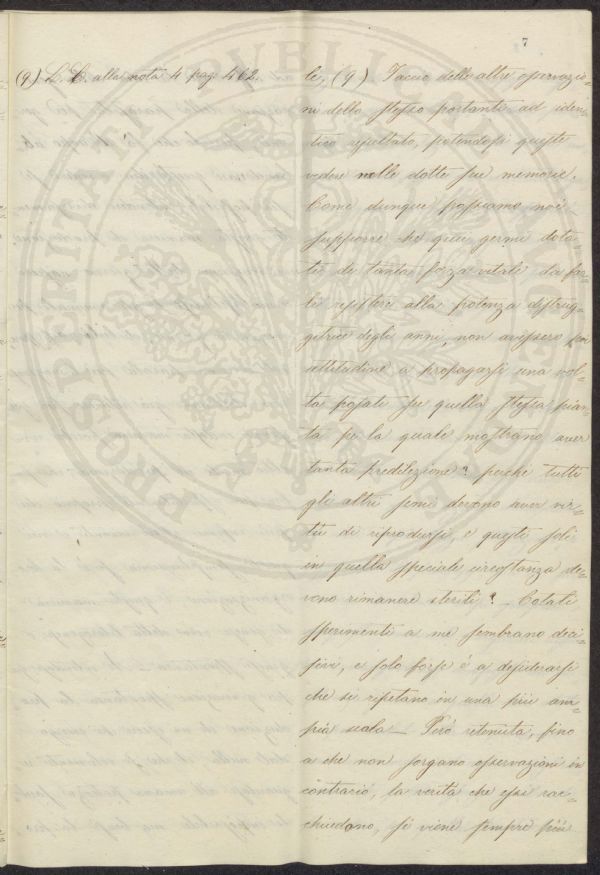 7
(9) L. C. alla nota 4 pag. 462.
le, (9) Taccio delle altre osservazio-
ni dello stesso portanti ad iden-
tico resultato, potendosi queste
vedere nelle dotte sue memorie.
Come dunque possiamo noi
supporre che quei germi dota-
ti di tanta forza vitale da far-
li resistere alla potenza distrug-
gitrice degli anni, non avessero poi
attitudine a propagarsi una vol-
ta posati su quella stessa pian-
ta per la quale mostrano aver
tanta predilezione? perchè tutti
gli altri semi devono aver vir-
tù di riprodursi, e questi soli
in quella speciale circostanza de-
vono rimanere sterili? – Cotali
sperimenti a me sembrano deci-
sivi, e solo forse è a desiderarsi
che si ripetano in una più am-
pia scala – Però ritenuta, fino
a che non sorgano osservazioni in
contrario, la verità che essi rac-
chiudono, si viene sempre più
PROSPERITATI PVBLICAE AVGENDAE